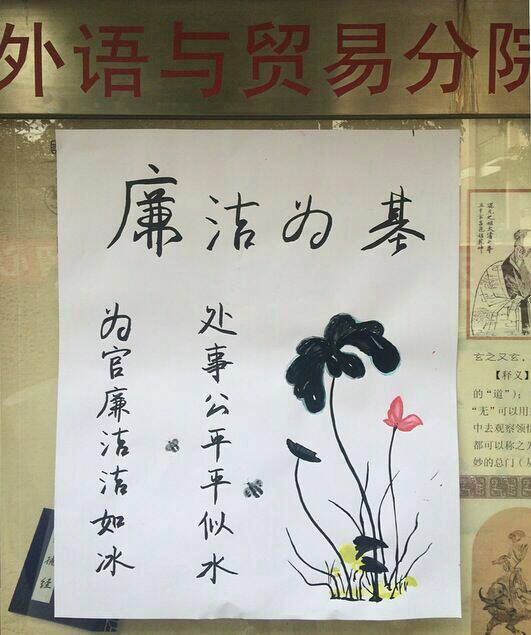 外语与贸易分院
廉洁为基
处事公平平似水
为官廉洁洁如冰
玄之又玄，
【释义】
的“道”）；
“无”可以用
中去观察领悟
都可以称之为
妙的总门（从